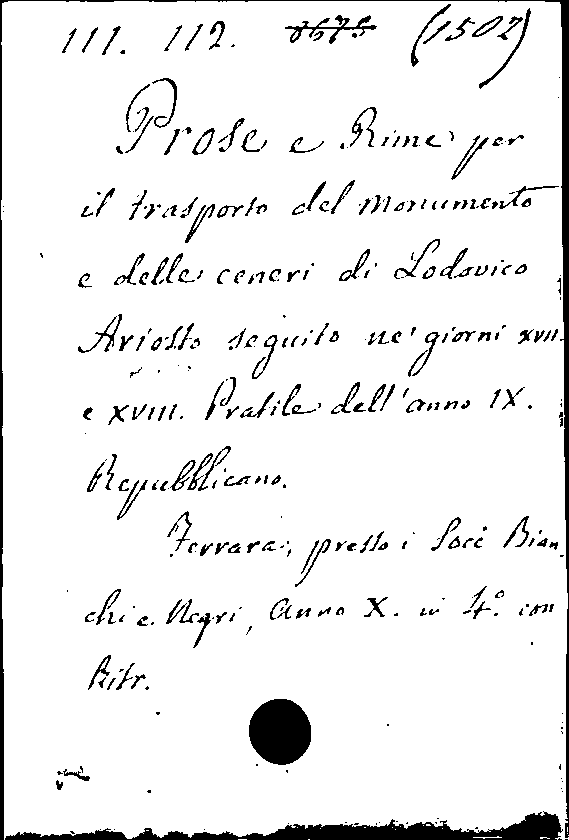 111. 112. 8675 (1502)
Prose e Rime per
il trasporto del monumento
e delle ceneri di Lodovico
Ariosto seguito ne' giorni XVII.
e XVIII. Pratile dell'anno IX.
Repubblicano.
Ferrara, presso i Socî Bian
chi e Negri, Anno X. in 4.° con
Ritr.